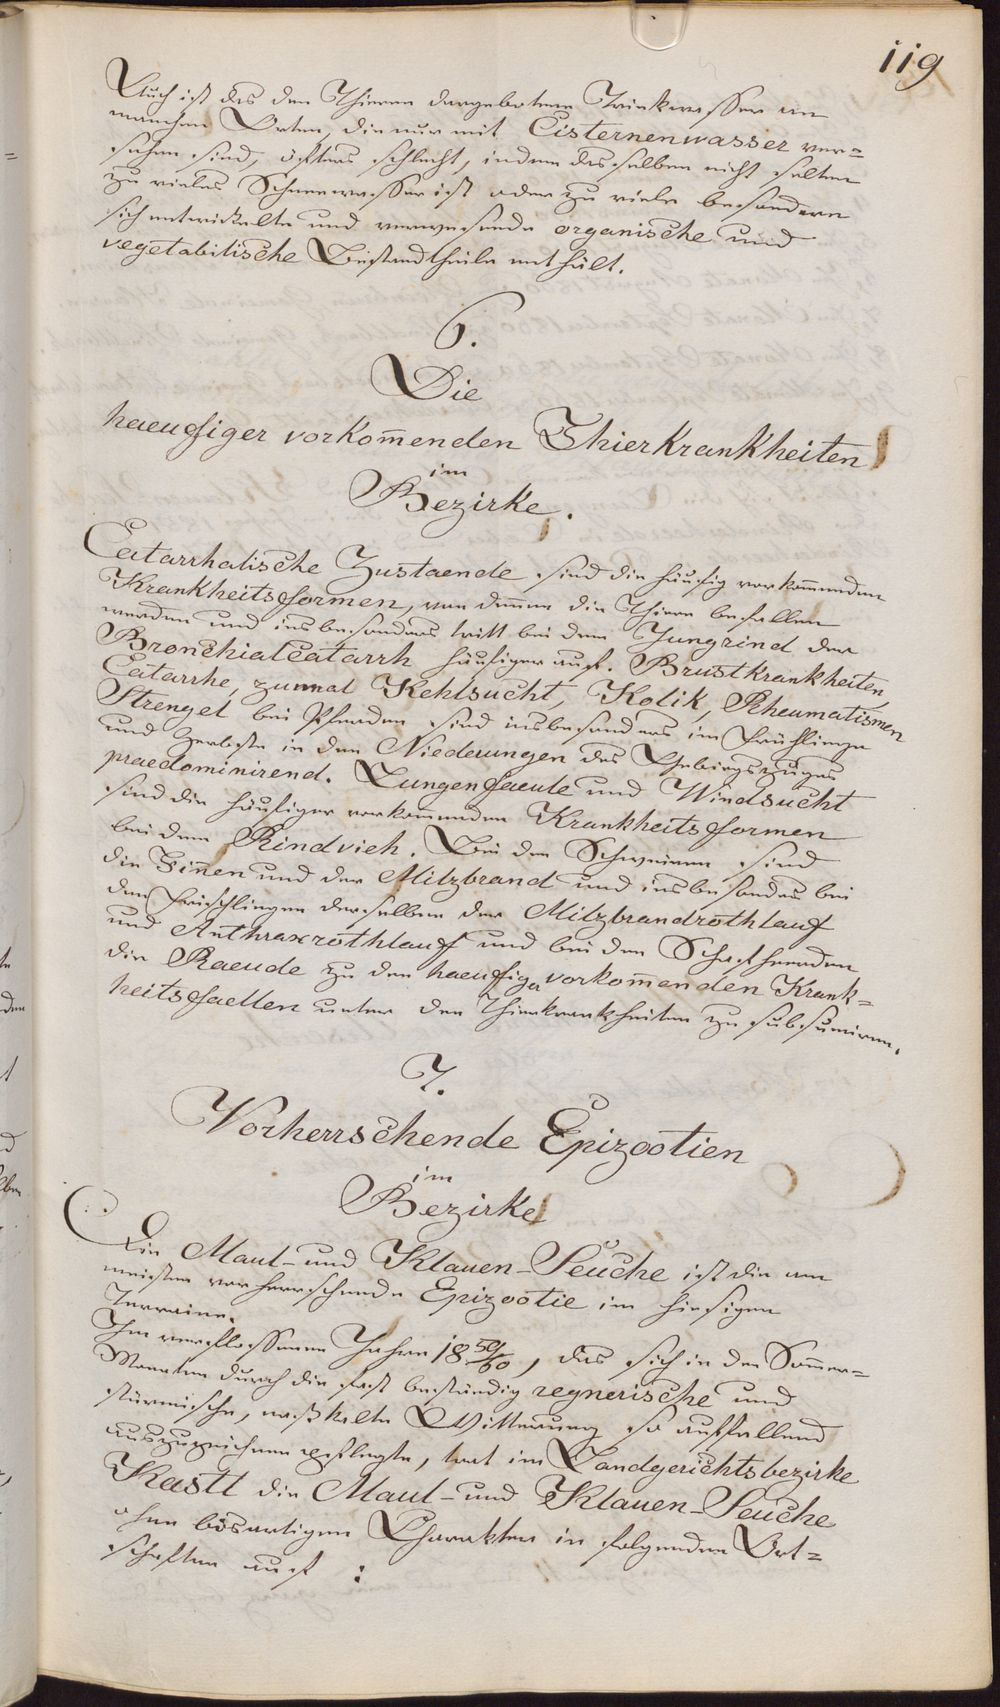 119
Auch ist das den Thieren dargebotene Trinkwasser an
manchen Orten, die nur mit Cisternenwasser ver=
sehen sind, öfters schlecht, indem dasselbe nicht selten
zu vieles Schneewasser ist oder zu viele besonders
sich entwickelte und verwesende organische und
vegetabilische Bestandtheile enthält.
6.
Die
haeufiger vorkom̄enden Thierkrankheiten
im
Bezirke.
Catarrhalische Zustaende sind die häufig vorkom̄enden
Krankheitsformen, von denen die Thiere befallen
werden und insbesonders tritt bei dem Jungrind der
Bronchialcatarrh häufiger auf. Brustkrankheiten,
Catarrhe, zumal Kehlsucht, Kolik, Rheumatismen
Strengel bei Pferden sind insbesonders im Frühlinge
und Herbste in den Niederungen des Gebirgszuges
praedominirend. Lungenfaeule und Windsucht
sind die häufiger vorkommenden Krankheitsformen
bei dem Rindvieh. Bei den Schweinen sind
die Fin̄en und der Milzbrand und insbesondere bei
den Frischlingen derselben der Milzbrandrothlauf
und Anthraxrothlauf und bei den Schafheerden
die Raeude zu den haeufiger vorkom̄enden Krank=
heitsfaellen unter den Thierkrankheiten zu subsumiren.
7.
Vorherrschende Epizootien
im
Bezirke
Die Maul- und Klauen-Seuche ist die am
meisten vorherrschende Epizootie im hiesigen
Terraine.
Im verflossenen Jahre 18 59/60, das sich in den Som̄er=
Monaten durch die fast beständig regnerische und
stürmische, naßkalte Witterung so auffallend
auszuzeichnen pflegte, trat im Landgerichtsbezirke
Kastl die Maul- und Klauen-Seuche
ohne bösartigen Charakter in folgenden Ort=
schaften auf :